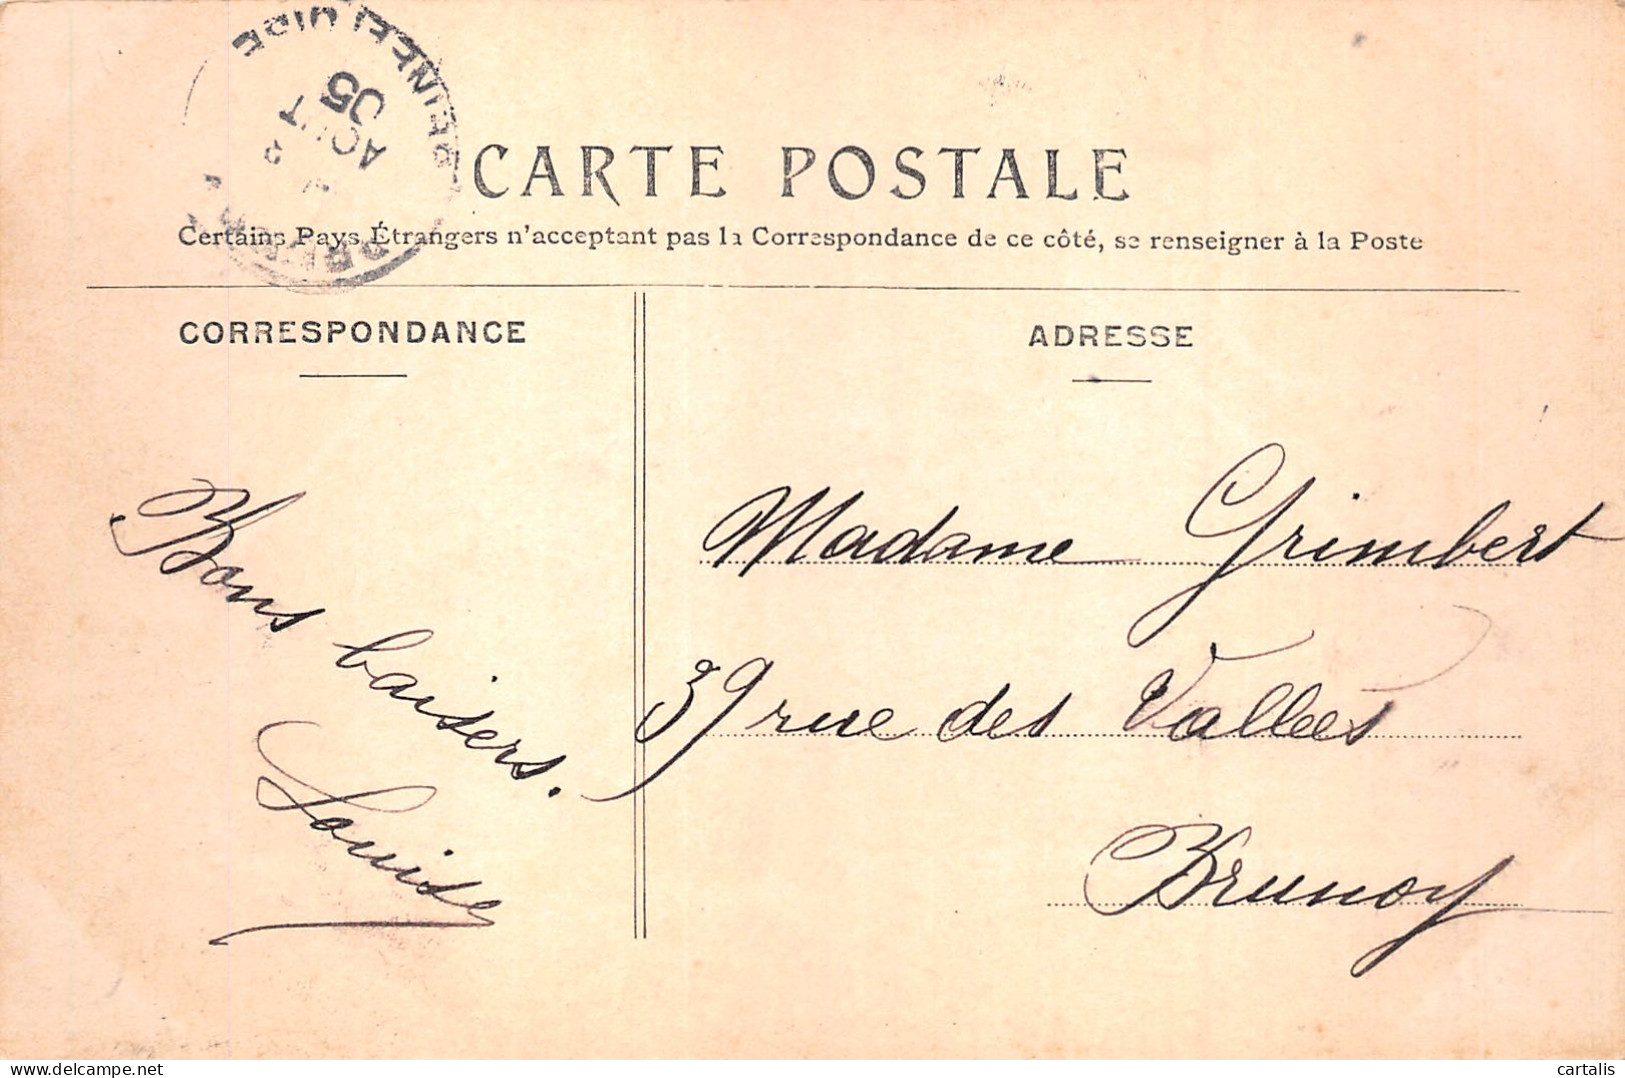 AOUT
05
CARTE POSTALE
Certains Pays Étrangers n'acceptant pas la Correspondance de ce côté, se renseigner à la Poste
CORRESPONDANCE
ADRESSE
Bons baisers.
Louise
Madame Grimbert
39 rue des Vallées
Brunoy
delcampe.net
cartalis